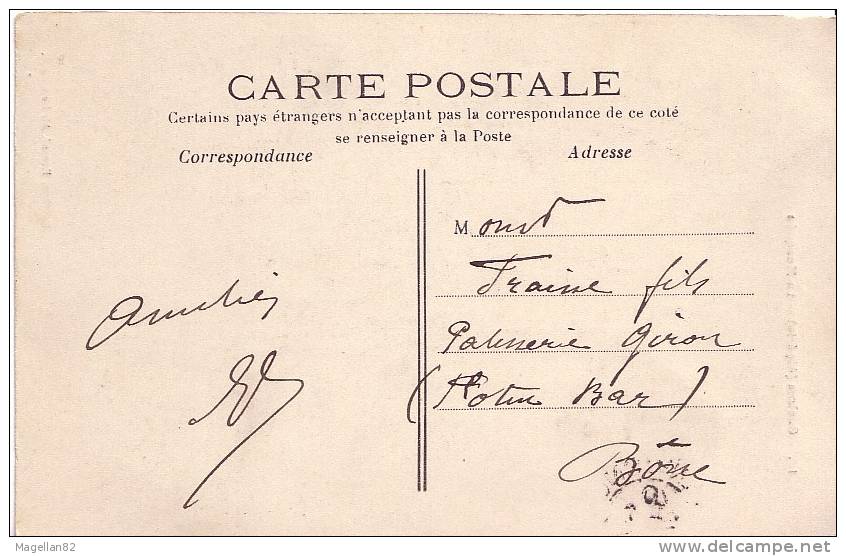 CARTE POSTALE
Certains pays étrangers n'acceptant pas la correspondance de ce coté
se renseigner à la Poste
Correspondance
Adresse
Amitiés
M
fils
Patisserie Giron
Bar)
Bône
Magellan82
delcampe.net